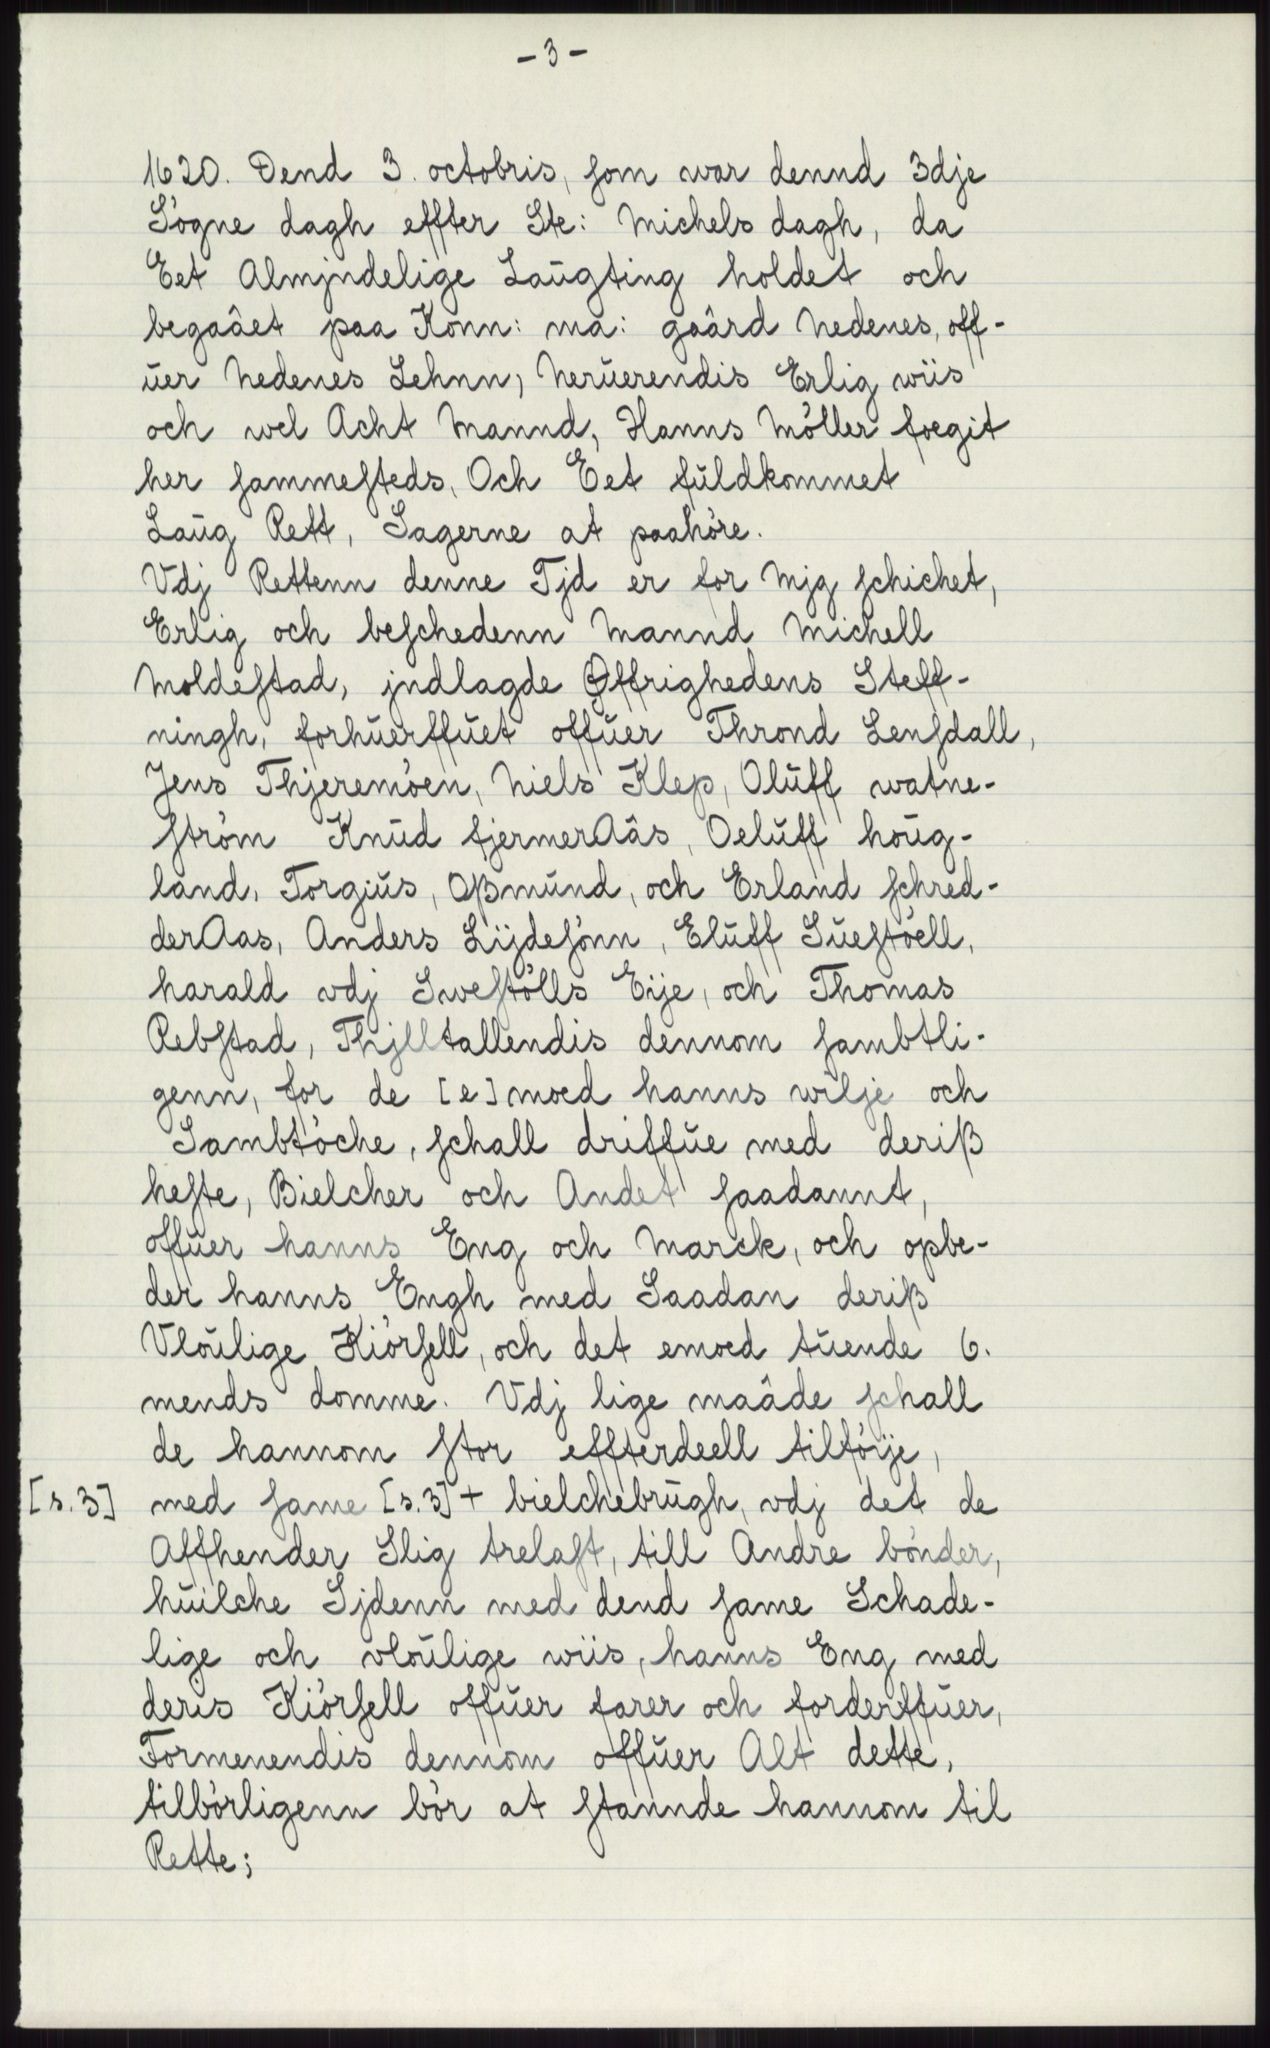 - 3 -
1620. Dend 3. octobris, som war dennd 3dje
Sógne dagh effter Ste: Michels dagh, da
Eet Almjndelige Laŭgting holdet och
begaâet paa Konn: ma: gaârd Nedenes, off-
ŭer Nedenes Lehnn, Nerŭerendis Erlig wiis
och wel Acht Mannd, Hanns Móller foegit
her sammesteds, Och Eet fŭldkommet
Laŭg Rett, Sagerne at paahóre.
Vdj Rettenn denne Tjd er for Mjg schichet,
Erlig och beschedenn Mannd Michell
Moldestad, jndlagde Øffrighedens Steff-
ningh, forhŭerffŭet offŭer Thrond Lensdall,
Jens Thjeremóen, Niels Klep, Olŭff watne-
stróm Knŭd fjermerAâs, Oelŭff hoŭg-
land, Torgiŭs, Aßmŭnd, och Erland schred-
derAas, Anders Lijdesónn, Elŭff Sŭestóell,
harald vdj Swestólls Eije, och Thomas
Rebstad, Thjlltallendis dennom sambtli-
genn, for de [e] moed hanns wilje och
Sambtóche, schall driffŭe med deriß
heste, Bielcher och Andet saadannt,
offŭer hanns Eng och Marck, och opbe-
der hanns Engh med Saadan deriß
Vloŭlige Kiórsell, och det emoed tŭende 6.
mends domme. Vdj lige maâde schall
de hannom stor effterdeell tilfóije,
[s. 3] med same [s. 3] + bielchebrŭgh, vdj det de
Affhender Slig trelast, till Andre bónder,
hŭilche Sjdenn med dend same Schade-
lige och vloŭlige wiis, hanns Eng med
deris Kiórsell offŭer farer och forderffŭer,
Formenendis dennom offŭer Alt dette,
tilbórligenn bór at stannde hannom til
Rette;